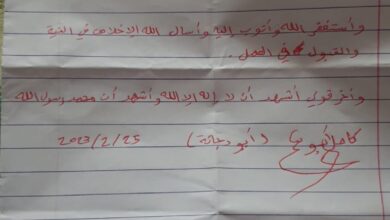 وأستغفر الله وأتوب إليه وأسأل الله الإخلاص في النية
والقبول في العمل .
وأخر قولي أشهد أن لا إله إلا الله وأشهد أن محمد رسول الله
كامل أبو (أبو دجانة) 2023/2/25